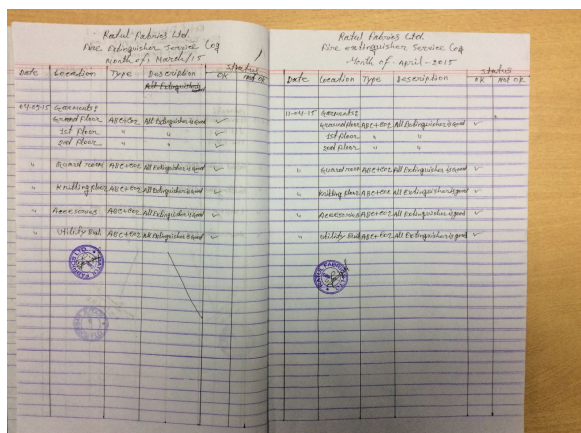 Ratul Fabrics Ltd.
Fire Extinguisher Service Log
Month of: March/15
Date Location Type Description Status
OK not OK
All Extinguisher
Garments:
Ground Floor ABC+CO2 All Extinguisher is good ✓
1st Floor " " ✓
2nd Floor " " ✓
" Guard room ABC+CO2 All Extinguisher is good ✓
" Knitting Floor ABC+CO2 All Extinguisher is good ✓
" Accessories ABC+CO2 All Extinguisher is good ✓
" Utility ABC+CO2 All Extinguisher is good ✓
Ratul Fabrics Ltd.
Fire extinguisher Service Log
Month of April-2015
Date Location Type Description Status
OK not OK
11-04-15 Garments:
Ground Floor ABC+CO2 All Extinguisher is good ✓
1st Floor " "
2nd Floor " " ✓
" Guard room ABC+CO2 All Extinguisher is good ✓
" Knitting Floor ABC+CO2 All Extinguisher is good ✓
" Accessories ABC+CO2 All Extinguisher is good ✓
" Utility ABC+CO2 All Extinguisher is good ✓